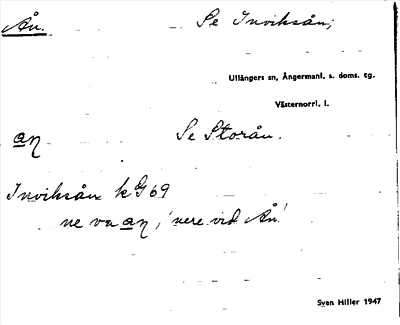 Ån. Se Inviksån;
Ullångers sn, Ångermanl. s. doms. tg.
Västernorrl. l.
aṇ Se Storån.
Inviksån k G 69
ne va aṇ, 'nere vid Ån'
Sven Hiller 1947